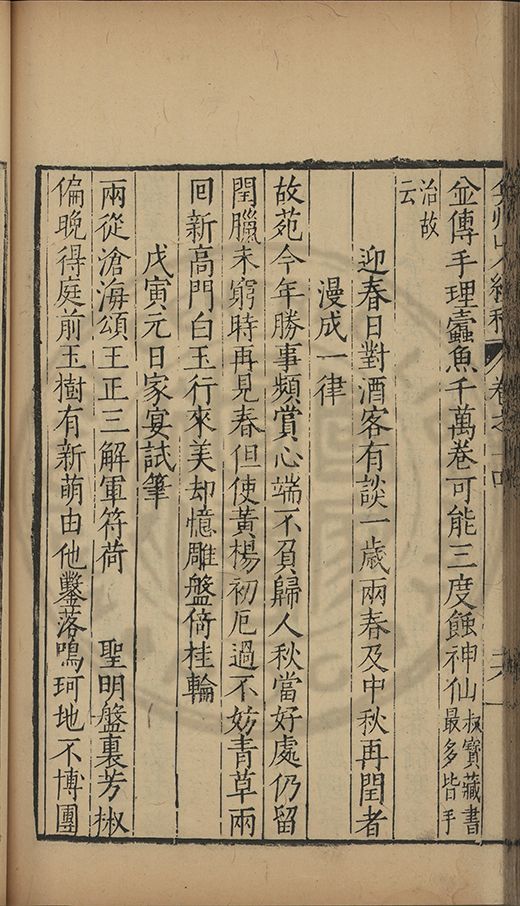 弇州山人續稿 卷之十四
並傳手理蠹魚千萬卷可能三度蝕神仙叔寶藏書最多皆手
治故云
迎春日對酒客有談一歲兩春及中秋再閏者
漫成一律
故苑今年勝事頻賞心端不負歸人秋當好處仍留
閏臘未窮時再見春但使黃楊初厄過不妨青草兩
回新高門白玉行來美却憶雕盤倚桂輪
戊寅元日家宴試筆
兩從滄海頌王正三解軍符荷 聖明盤裏芳椒
偏晚得庭前玉樹有新萌由他鑿落鳴珂地不博團